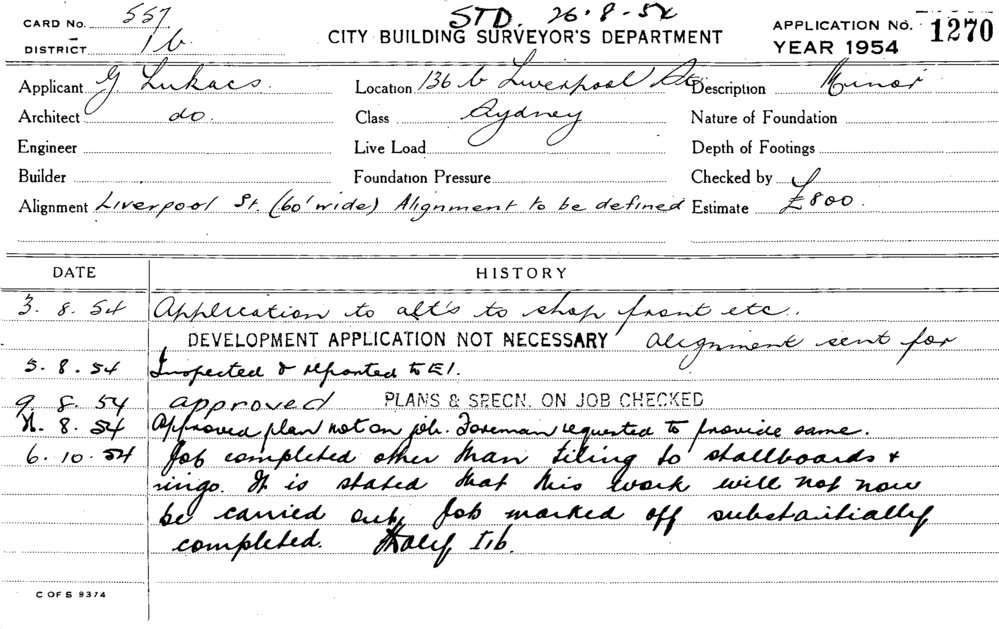 CARD No. 557 STD. 26.8.54 APPLICATION No. 1270
DISTRICT 1b CITY BUILDING SURVEYOR'S DEPARTMENT YEAR 1954
Applicant G Lukacs. Location 136 b Liverpool St. Description Minor
Architect do. Class Sydney Nature of Foundation
Engineer Live Load Depth of Footings
Builder Foundation Pressure Checked by
Alignment Liverpool St. (60' wide) Alignment to be defined Estimate £800.
DATE HISTORY
3. 8. 54 Application to alt's to shop front etc.
DEVELOPMENT APPLICATION NOT NECESSARY alignment sent for
5. 8. 54 Inspected & reported to E1.
9. 8. 54 approved PLANS & SPECN. ON JOB CHECKED
8. 54 Approved plan not on job. Foreman requested to provide same.
6. 10. 54 Job completed other than tiling to stallboards &
ringo. It is stated that this work will not now
be carried out, Job marked off substantially
completed.
C OF S 9374